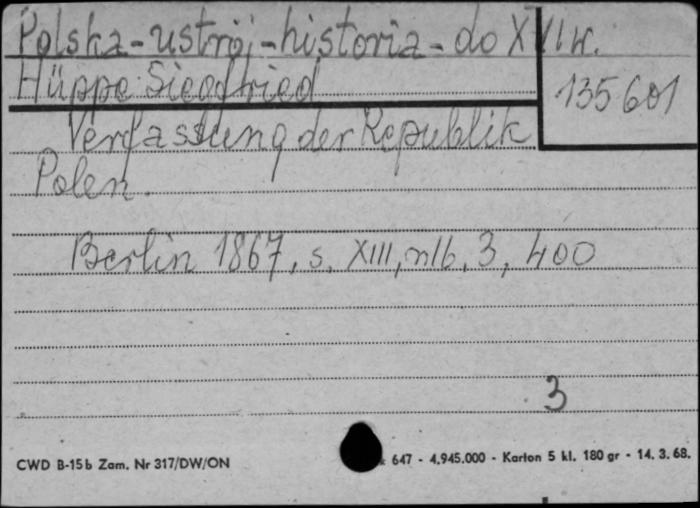 Polska - ustrój - historia - do XVI w.
Hüppe Siegfried
135601
Verfassung der Republik
Polen.
Berlin 1867, s. XIII, nlb, 3, 400
3
CWD B-15b Zam. Nr 317/DW/ON
647 - 4.945.000 - Karton 5 kl. 180 gr - 14. 3. 68.